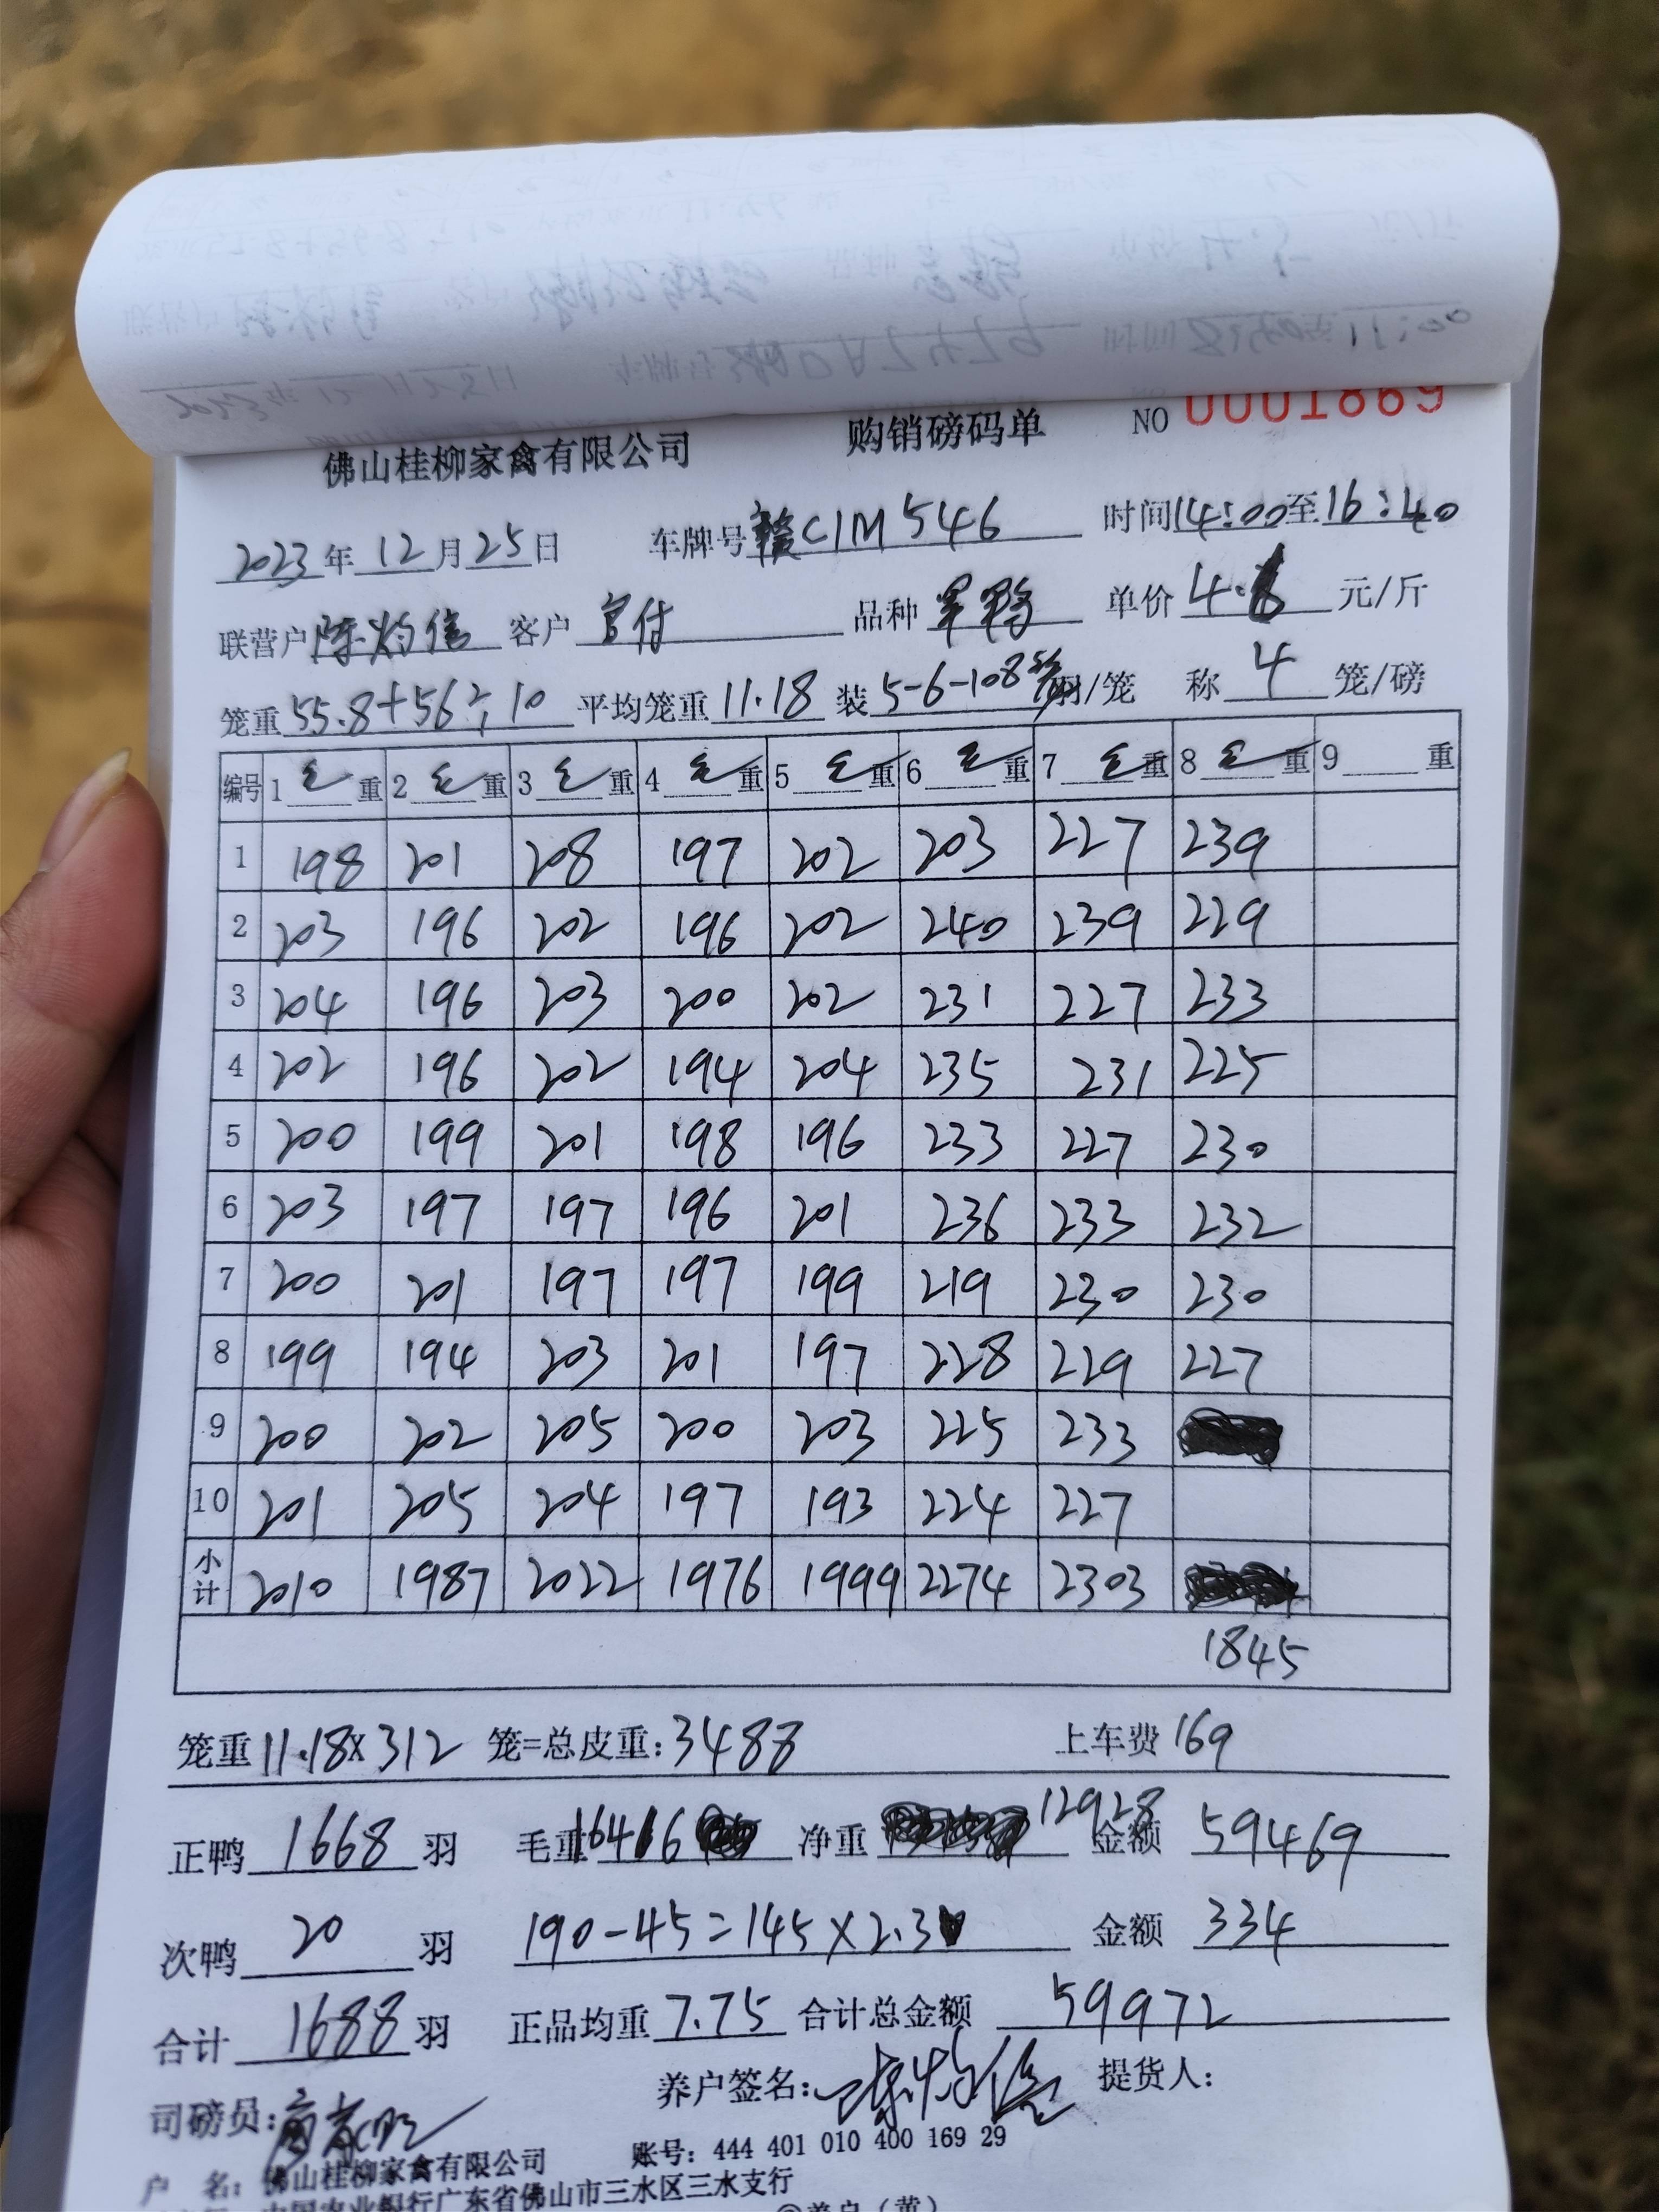 佛山桂柳家禽有限公司 购销磅码单 NO 0001869
2023年12月25日 车牌号赣C1M546 时间14:00至16:40
联营户陈灼信 客户 官付 品种 单价 4. 元/斤
笼重55.8+56÷10 平均笼重11.18 装5-6-108 羽/笼 称4笼/磅
编号 1 毛重 2 毛重 3 毛重 4 毛重 5 毛重 6 毛重 7 毛重 8 毛重 9 重
1 198 201 208 197 202 203 227 239
2 203 196 202 196 202 240 239 229
3 204 196 203 200 202 231 227 233
4 202 196 202 194 204 235 231 225
5 200 199 201 198 196 233 227 230
6 203 197 197 196 201 236 233 232
7 200 201 197 197 199 219 230 230
8 199 194 203 201 197 228 229 227
9 200 202 205 200 203 225 233
10 201 205 204 197 193 224 227
小计 2010 1987 2022 1976 1999 2274 2303
1845
笼重11.18×312 笼=总皮重:3488 上车费169
正鸭1668羽 毛重16416 净重12928 金额59469
次鸭20羽 190-45=145×2.3 金额334
合计1688羽 正品均重7.75 合计总金额59972
司磅员: 养户签名:陈灼信 提货人:
户 名:佛山桂柳家禽有限公司 账号:444 401 010 400 169 29
中国农业银行广东省佛山市三水区三水支行